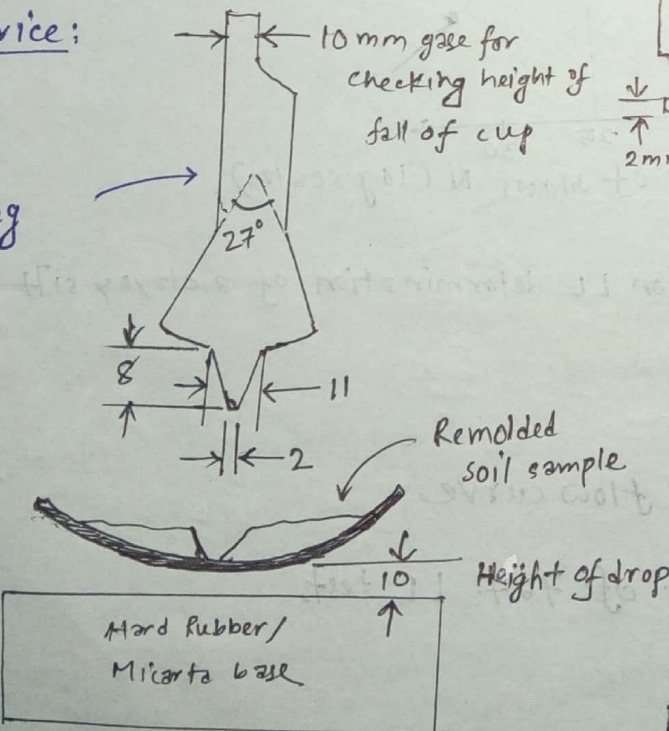 vice:
10 mm gase for
checking height of
fall of cup
2m
g
27°
8
11
2
Remolded
soil sample
10
Height of drop
Hard Rubber/
Micarta base